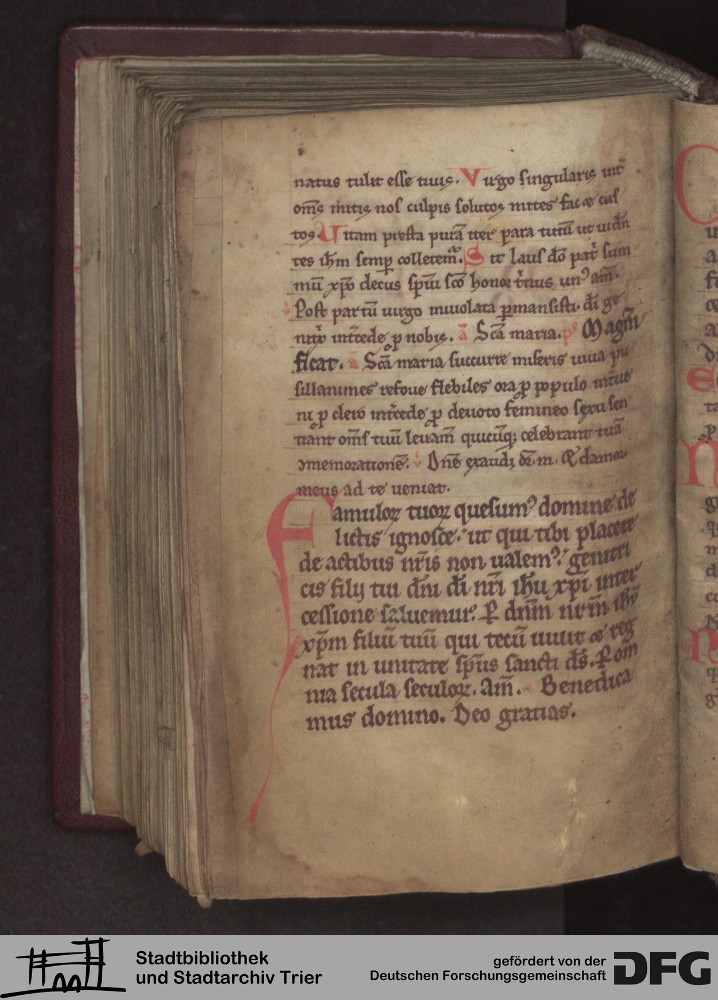 natus tulit esse tuus. Virgo singularis int̄
om̄s mitis nos culpis solutos mites fac ⁊ cas
tos. Vitam presta purā iter para tutū ut uidn̄
tes ih̄m semꝑ colletem̄. Sit laus do͞ pat̄ sum
mū xp̄o decus sp̄ui sc̄o honor t̄bus unꝰ am̄.
Post partū uirgo inuiolata ꝑmansisti. di ge
nitx̄ int̄cede ꝓ nobis. a Sc̄a maria. ps Magn̄i
ficat. a Sc̄a maria succurre miseris iuua pu
sillanimes refoue flebiles ora ꝓ populo int̄ue
ni ꝓ clero int̄cede ꝓ deuoto femineo sexu sen
tiant om̄s tuū leuam̄ quicūqꝫ celebrant tuā
ↄmemorationē. Dn̄e exaudi or̄. m. Et clamor
meus ad te ueniat.
Famuloꝝ tuoꝝ quesumꝰ domine de
lictis ignosce. ut qui tibi placere
de actibus nr̄is non ualemꝰ. genitri
cis filij tui dn̄i di nr̄i ih̄u xp̄i inter
cessione saluemur. P dn̄m nr̄m ih̄m
xp̄m filiū tuū qui tecū uiuit ⁊ reg
nat in unitate sp̄us sancti ds̄. P om̄
nia secula seculoꝝ. Am̄. Benedica
mus domino. Deo gratias.
Stadtbibliothek
und Stadtarchiv Trier
gefördert von der
Deutschen Forschungsgemeinschaft
DFG